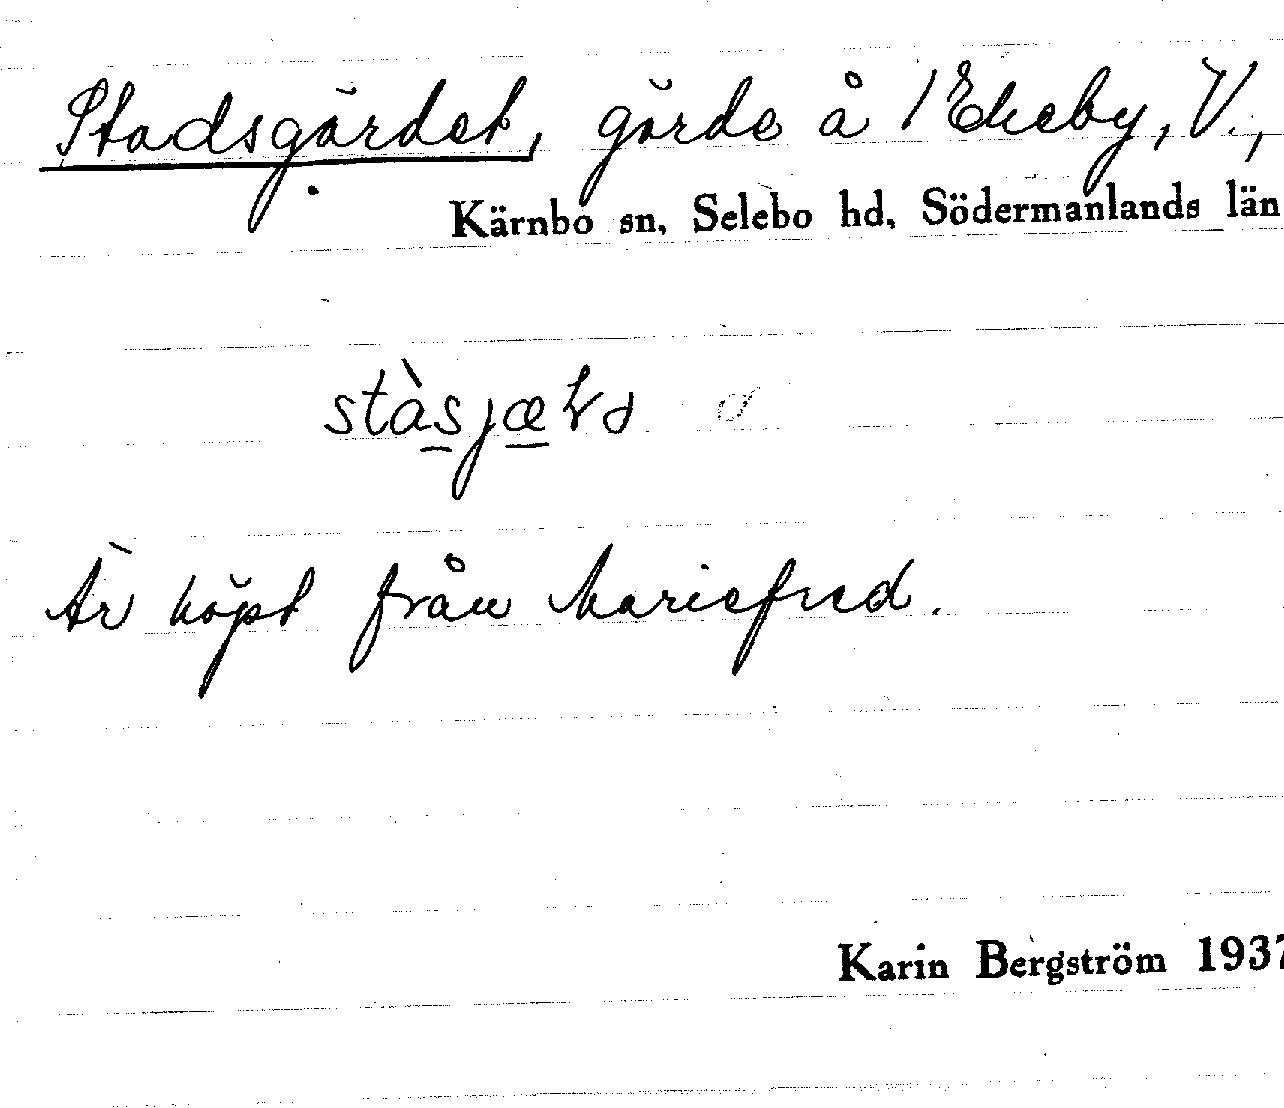 Stadsgärdet, gärde å 1 Ekeby, V.,
Kärnbo sn, Selebo hd, Södermanlands län
Är köpt från Mariefred.
Karin Bergström 1937